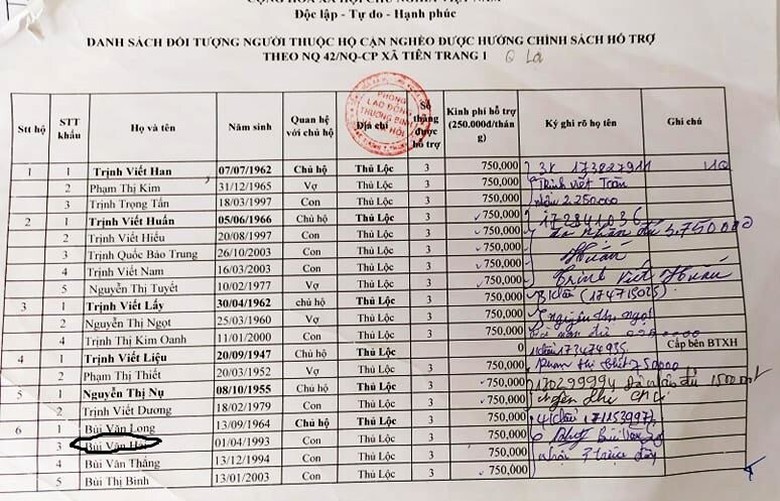 CỘNG HÒA XÃ HỘI CHỦ NGHĨA VIỆT NAM
Độc lập - Tự do - Hạnh phúc
DANH SÁCH ĐỐI TƯỢNG NGƯỜI THUỘC HỘ CẬN NGHÈO ĐƯỢC HƯỞNG CHÍNH SÁCH HỖ TRỢ
THEO NQ 42/NQ-CP XÃ TIÊN TRANG 1
PHÒNG LAO ĐỘNG THƯƠNG BINH HỘI
Stt hộ STT khẩu Họ và tên Năm sinh Quan hệ với chủ hộ Địa chỉ Số tháng được hỗ trợ Kinh phí hỗ trợ (250.000đ/tháng) Ký ghi rõ họ tên Ghi chú
1 1 Trịnh Viết Han 07/07/1962 Chủ hộ Thủ Lộc 3 750,000 173827911
2 Phạm Thị Kim 31/12/1965 Vợ Thủ Lộc 3 750,000 Trịnh Viết Toàn
3 Trịnh Trọng Tấn 18/03/1997 Con Thủ Lộc 3 750,000 2.250.000
2 1 Trịnh Viết Huấn 05/06/1966 Chủ hộ Thủ Lộc 3 750,000 172841036
2 Trịnh Viết Hiếu 20/08/1997 Con Thủ Lộc 3 750,000 đã nhận đủ 3.750.000
3 Trịnh Quốc Bảo Trung 26/10/2003 Con Thủ Lộc 3 750,000 Huấn
4 Trịnh Viết Nam 16/03/2003 Con Thủ Lộc 3 750,000
5 Nguyễn Thị Tuyết 10/02/1977 Vợ Thủ Lộc 3 750,000 Trịnh Viết Huấn
3 1 Trịnh Viết Lấy 30/04/1962 chủ hộ Thủ Lộc 3 750,000 3 khẩu
2 Nguyễn Thị Ngọt 25/03/1960 Vợ Thủ Lộc 3 750,000 Nguyễn Thị Ngọt
4 Trịnh Thị Kim Oanh 11/01/2000 Con Thủ Lộc 3 750,000
4 1 Trịnh Viết Liệu 20/09/1947 Chủ hộ Thủ Lộc 3 0 Cấp bên BTXH
2 Phạm Thị Thiết 20/03/1952 Vợ Thủ Lộc 3 750,000 750000
5 1 Nguyễn Thị Nụ 08/10/1955 Chủ hộ Thủ Lộc 3 750,000 170299994
2 Trịnh Viết Dương 18/02/1979 Con Thủ Lộc 3 750,000
6 1 Bùi Văn Long 13/09/1964 Chủ hộ Thủ Lộc 3 750,000 4 khẩu
3 Bùi Văn 01/04/1993 Con Thủ Lộc 3 750,000
4 Bùi Văn Thắng 13/12/1994 Con Thủ Lộc 3 750,000
5 Bùi Thị Bình 13/01/2003 Con Thủ Lộc 3 750,000